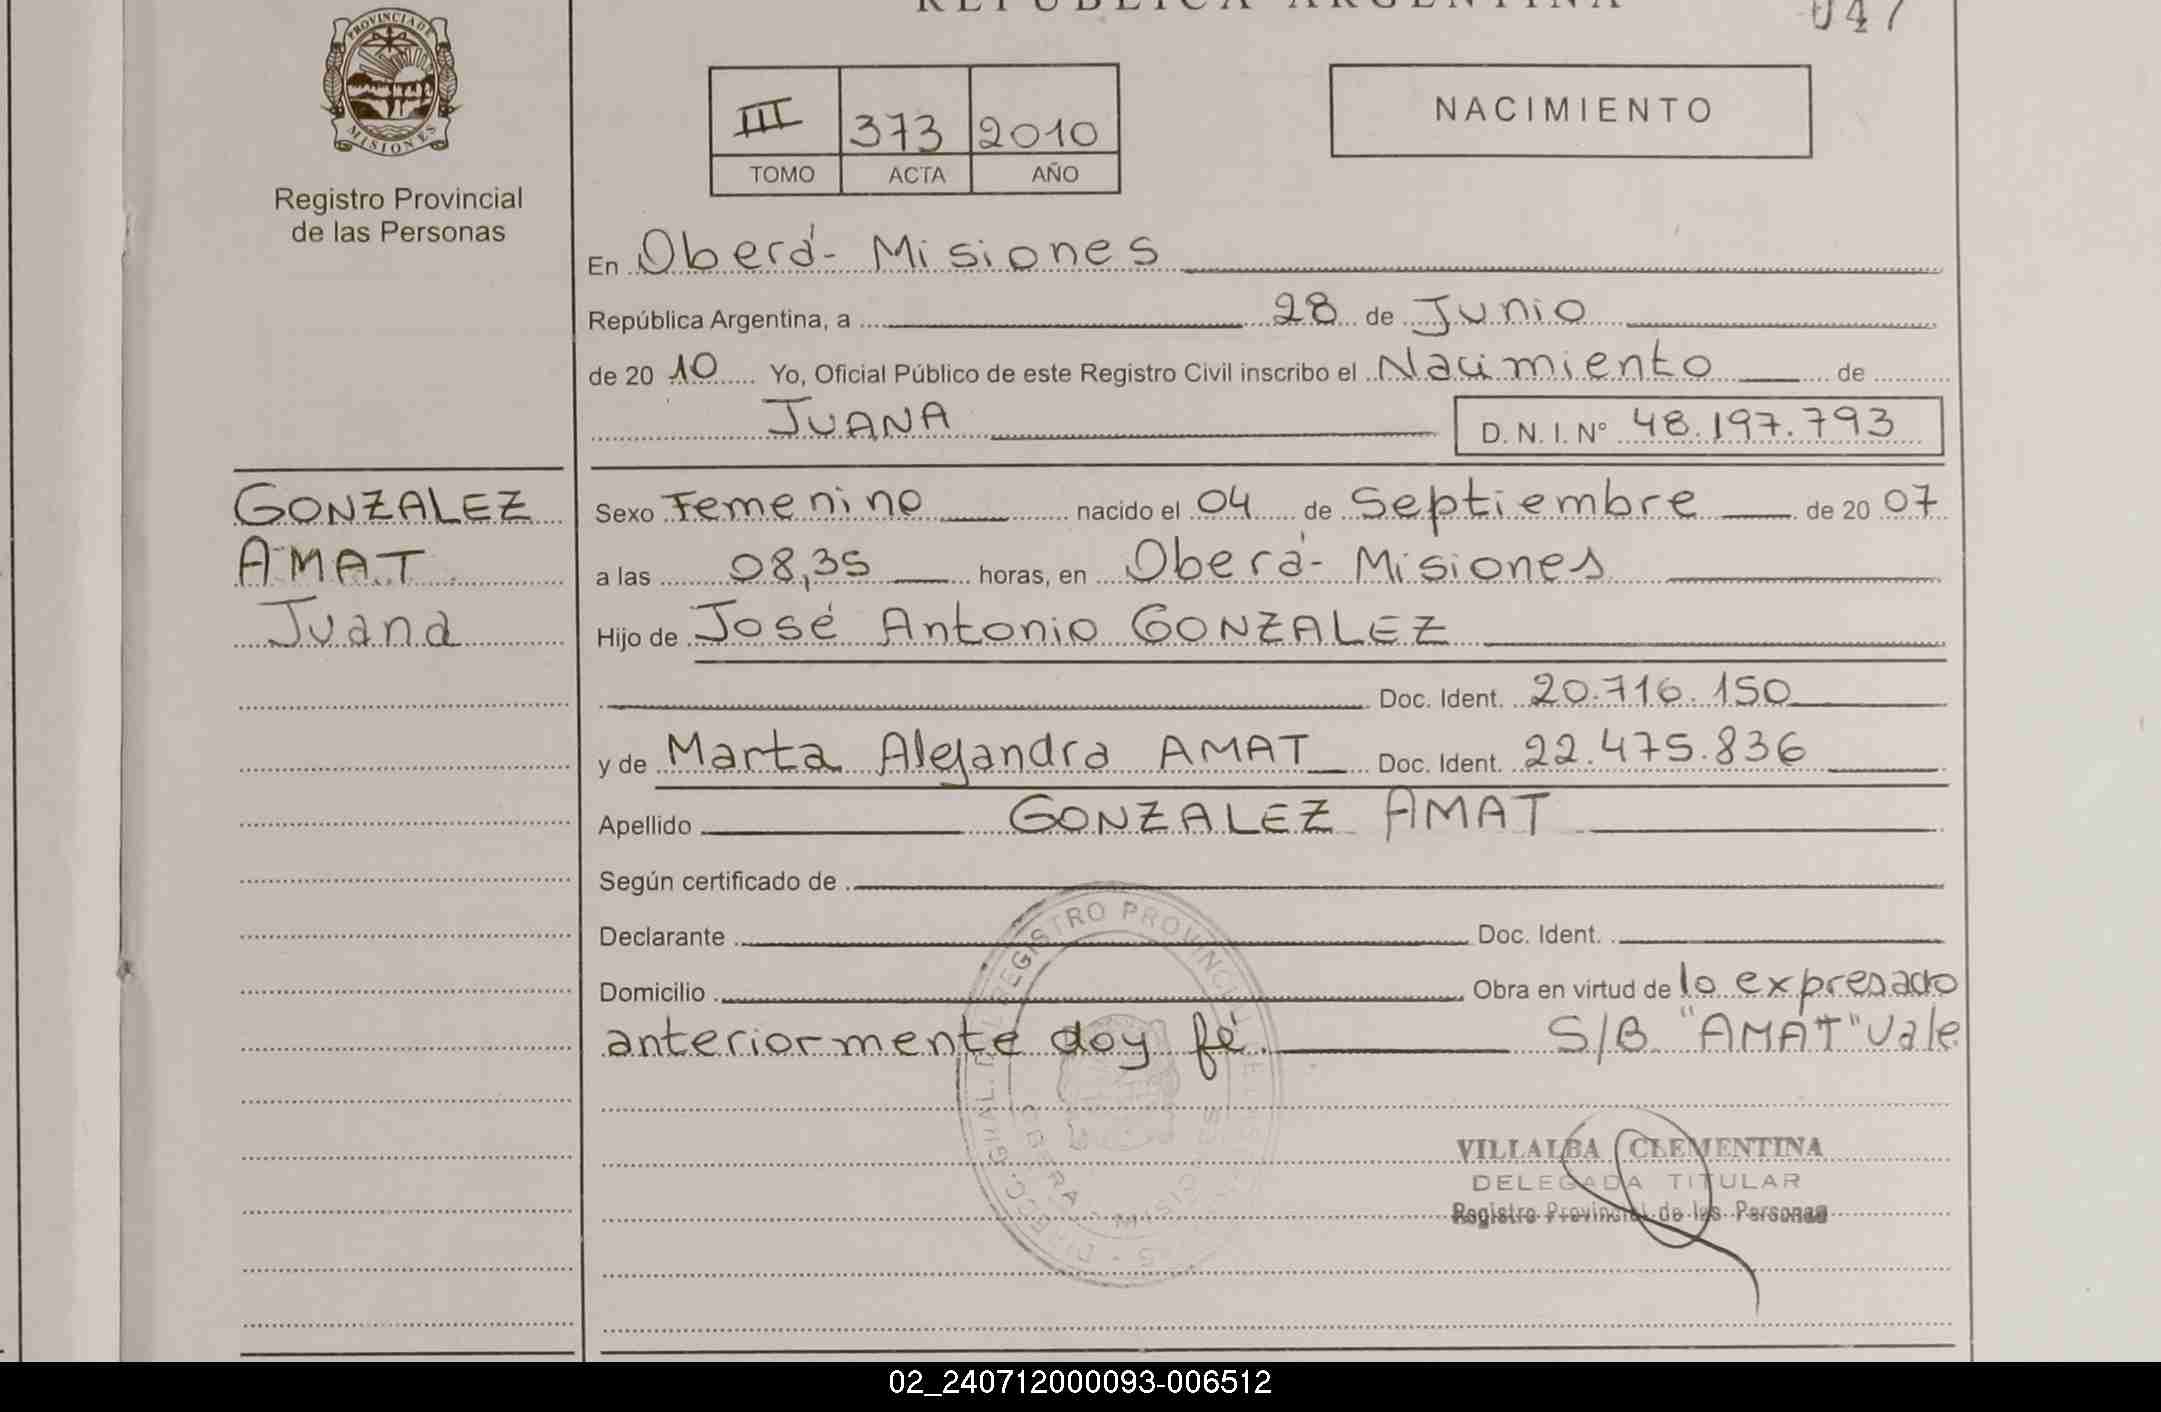 REPUBLICA ARGENTINA
047
PROVINCIA DE MISIONES
Registro Provincial
de las Personas
III 373 2010
TOMO ACTA AÑO
NACIMIENTO
En Oberá - Misiones
República Argentina, a 28 de Junio
de 20 10 Yo, Oficial Público de este Registro Civil inscribo el Nacimiento de
JUANA D. N. I. Nº 48.197.793
GONZALEZ
AMAT
Juana
Sexo Femenino nacido el 04 de Septiembre de 20 07
a las 08,35 horas, en Oberá - Misiones
Hijo de José Antonio GONZALEZ
Doc. Ident. 20.716.150
y de Marta Alejandra AMAT Doc. Ident. 22.475.836
Apellido GONZALEZ AMAT
Según certificado de
Declarante Doc. Ident.
Domicilio Obra en virtud de lo expresado
anteriormente doy fé. S/B "AMAT" Vale
REGISTRO PROVINCIAL
VILLALBA CLEMENTINA
DELEGADA TITULAR
Registro Provincial de las Personas
02_240712000093-006512